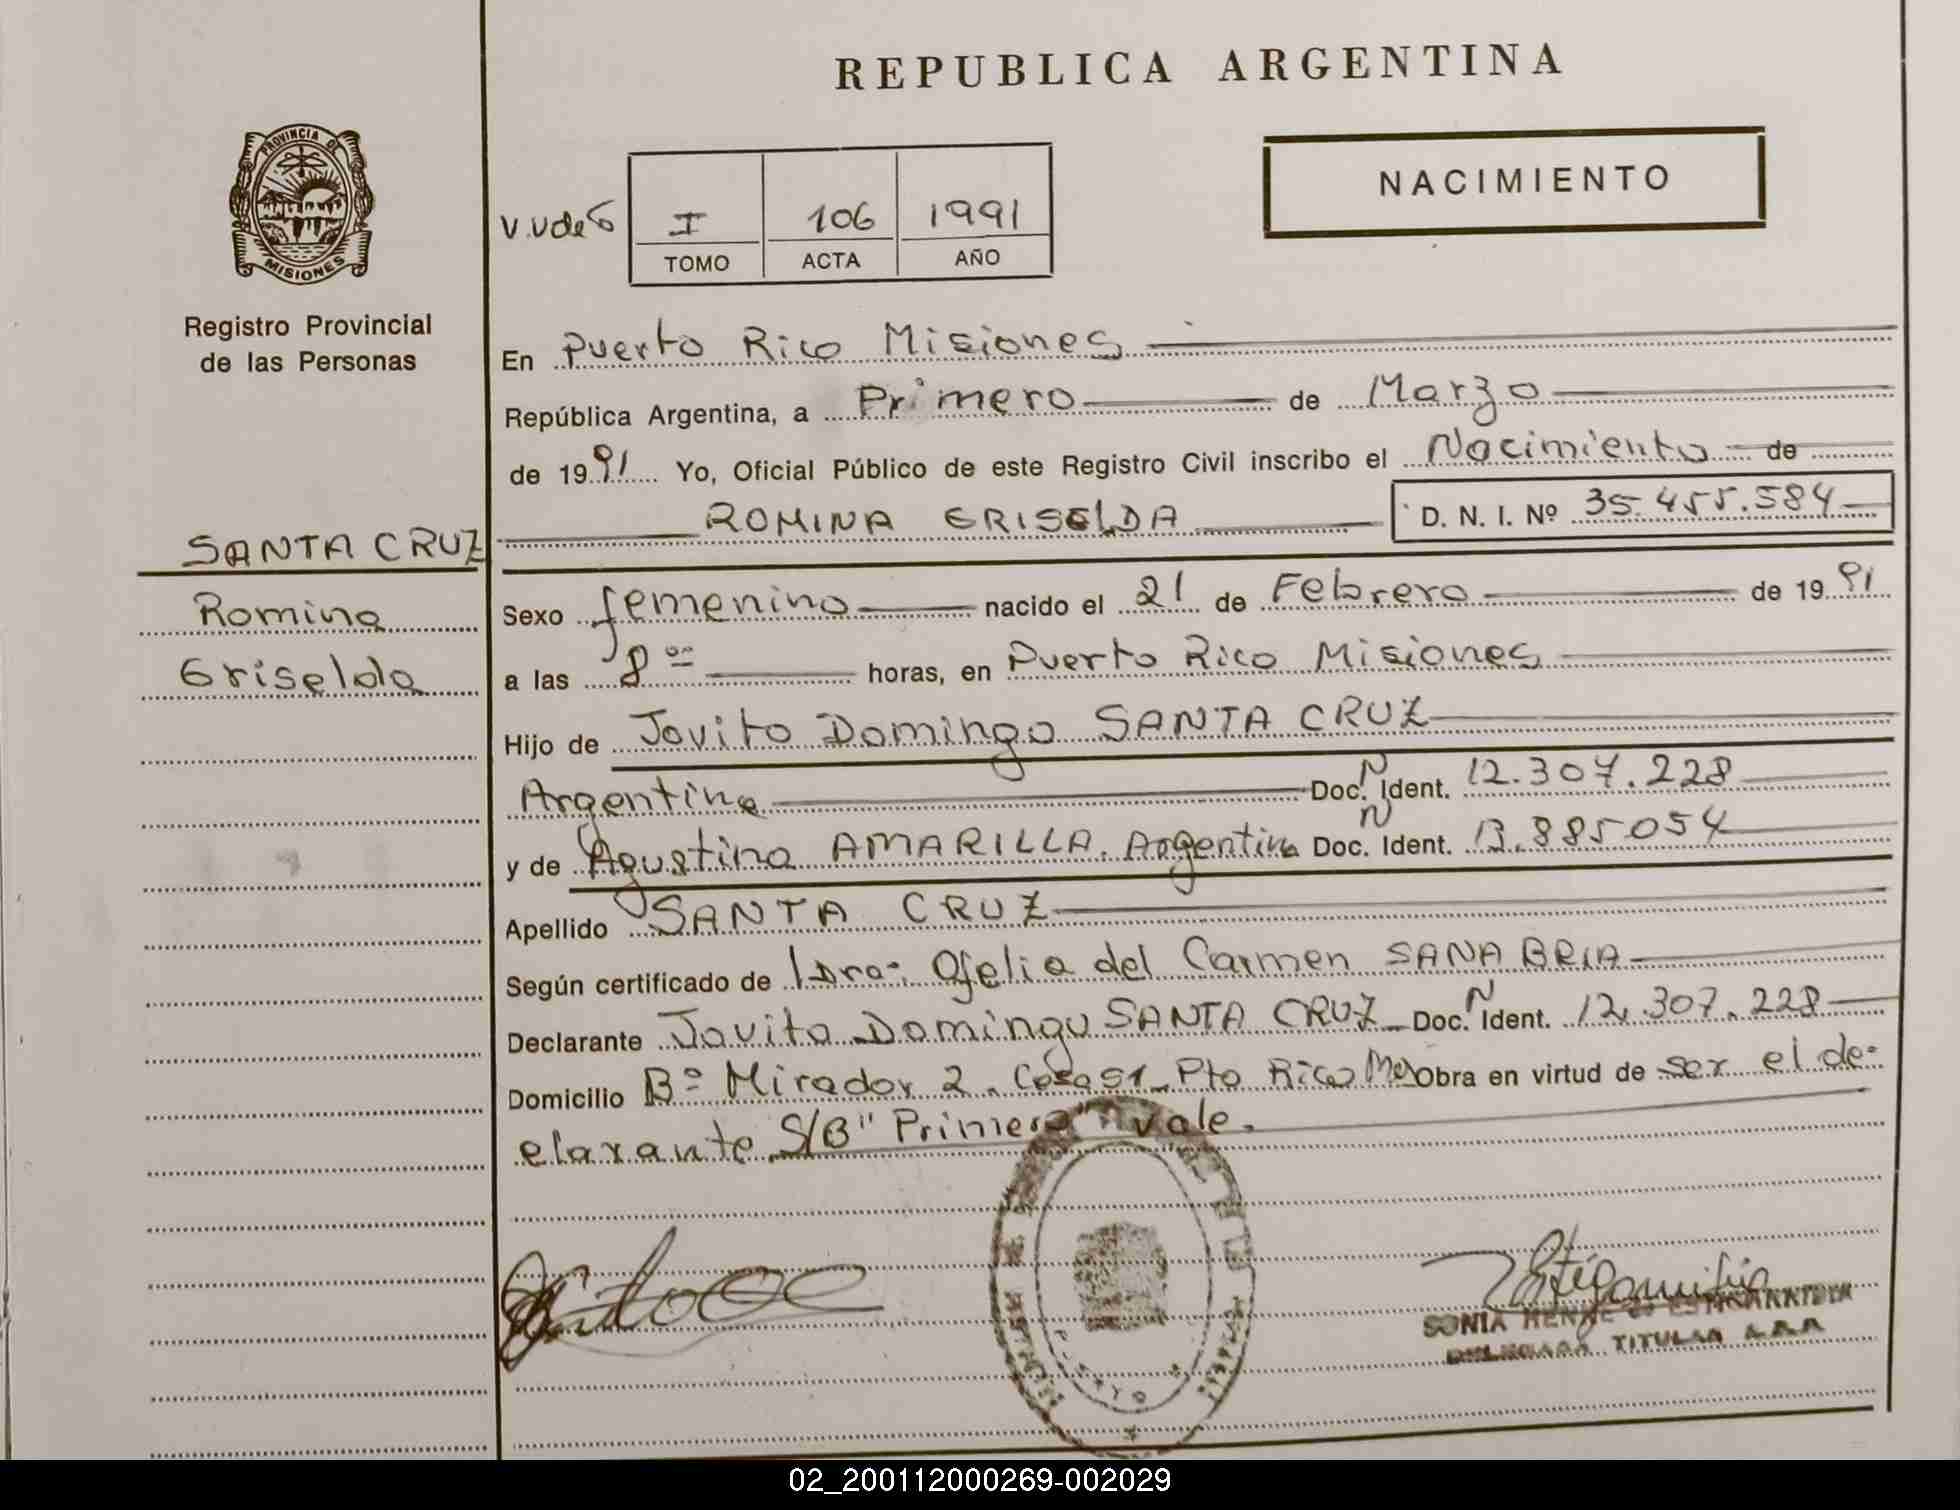 REPUBLICA ARGENTINA
PROVINCIA DE
MISIONES
NACIMIENTO
I 106 1991
TOMO ACTA AÑO
Registro Provincial
de las Personas
En Puerto Rico Misiones
República Argentina, a Primero de Marzo
de 1991 Yo, Oficial Público de este Registro Civil inscribo el Nacimiento de
ROMINA GRISELDA D. N. I. Nº 35.455.584
SANTA CRUZ
Romina
Griselda
Sexo femenino nacido el 21 de Febrero de 1991
a las 8 ºº horas, en Puerto Rico Misiones
Hijo de Jovito Domingo SANTA CRUZ
Argentino Doc. N Ident. 12.307.228
y de Agustina AMARILLA. Argentina Doc. N Ident. 13.885054
Apellido SANTA CRUZ
Según certificado de Dra: Ofelia del Carmen SANABRIA
Declarante Jovito Domingo SANTA CRUZ Doc. N Ident. 12.307.228
Domicilio Bº Mirador 2. Casa 51 Pto Rico Mes Obra en virtud de ser el de-
clarante S/B "Primero" vale.
SONIA HENNE de
TITULAR
02_200112000269-002029